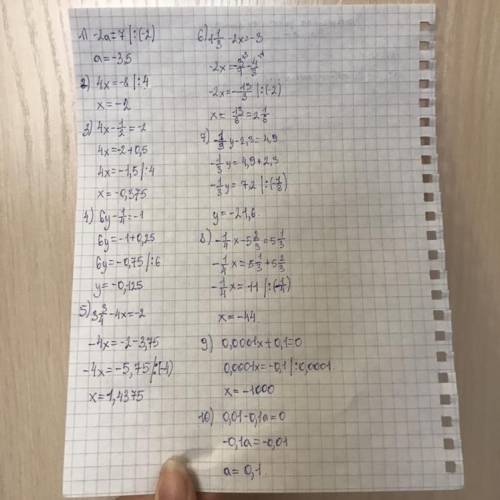 1) -2a=7 |:(-2)
a=-3,5
2) 4x=-8 |:4
x=-2
3) 4x-1/2=-2
4x=-2+0,5
4x=-1,5 |:4
x=-0,375
4) 6y-1/4=-1
6y=-1+0,25
6y=-0,75 |:6
y=-0,125
5) 3 3/4-4x=-2
-4x=-2-3,75
-4x=-5,75 |:(-4)
x=1,4375
6) 1 1/3-2x=-3
-2x=-3/1-4/3
-2x=-13/3 |:(-2)
x=13/6=2 1/6
7) -1/3y-2,3=4,9
-1/3y=4,9+2,3
-1/3y=7,2 |:(-1/3)
y=-21,6
8) -1/4x-5 2/3=5 1/3
-1/4x=5 1/3+5 2/3
-1/4x=11 |:(-1/4)
x=-44
9) 0,0001x+0,1=0
0,0001x=-0,1 |:0,0001
x=-1000
10) 0,01-0,1a=0
-0,1a=-0,01
a=0,1